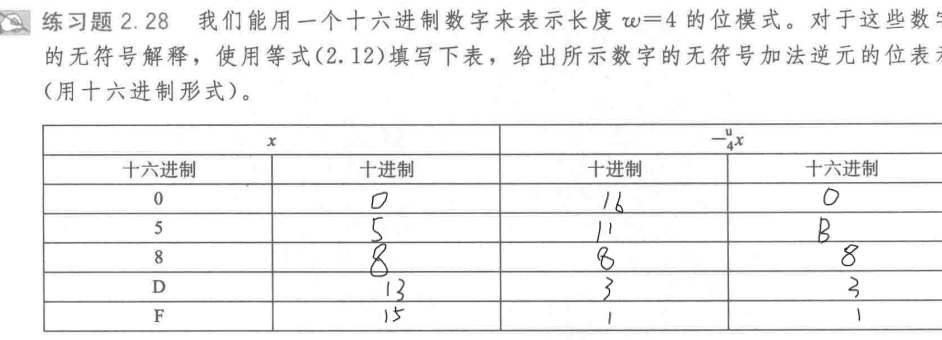 练习题 2.28 我们能用一个十六进制数字来表示长度 w=4 的位模式。对于这些数字
的无符号解释，使用等式(2.12)填写下表，给出所示数字的无符号加法逆元的位表示
(用十六进制形式)。
x -ᵘ₄x
十六进制 十进制 十进制 十六进制
0 0 16 0
5 5 11 B
8 8 8 8
D 13 3 3
F 15 1 1